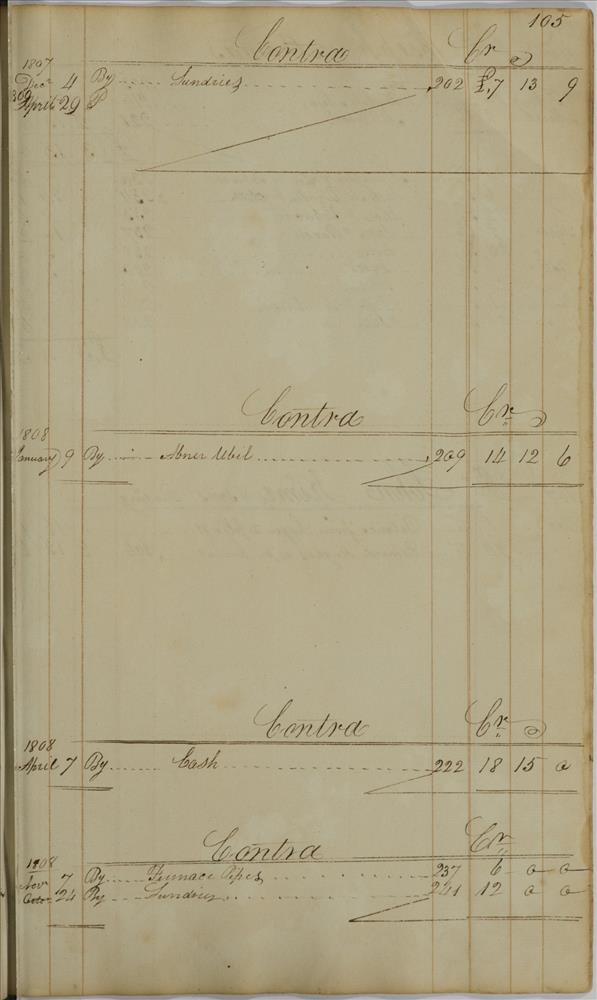 105
Contra Cr
1807
Decr 4 By Sundries 202 £.7 13 9
309
April 29 P
Contra Cr
1808
January 9 By Abner Ubil 209 14 12 6
Contra Cr
1808
April 7 By Cash 222 18 15 0
Contra Cr
1808
Novr 7 By Furnace Pipes 237 6 0 0
24 By Sundries 241 12 0 0